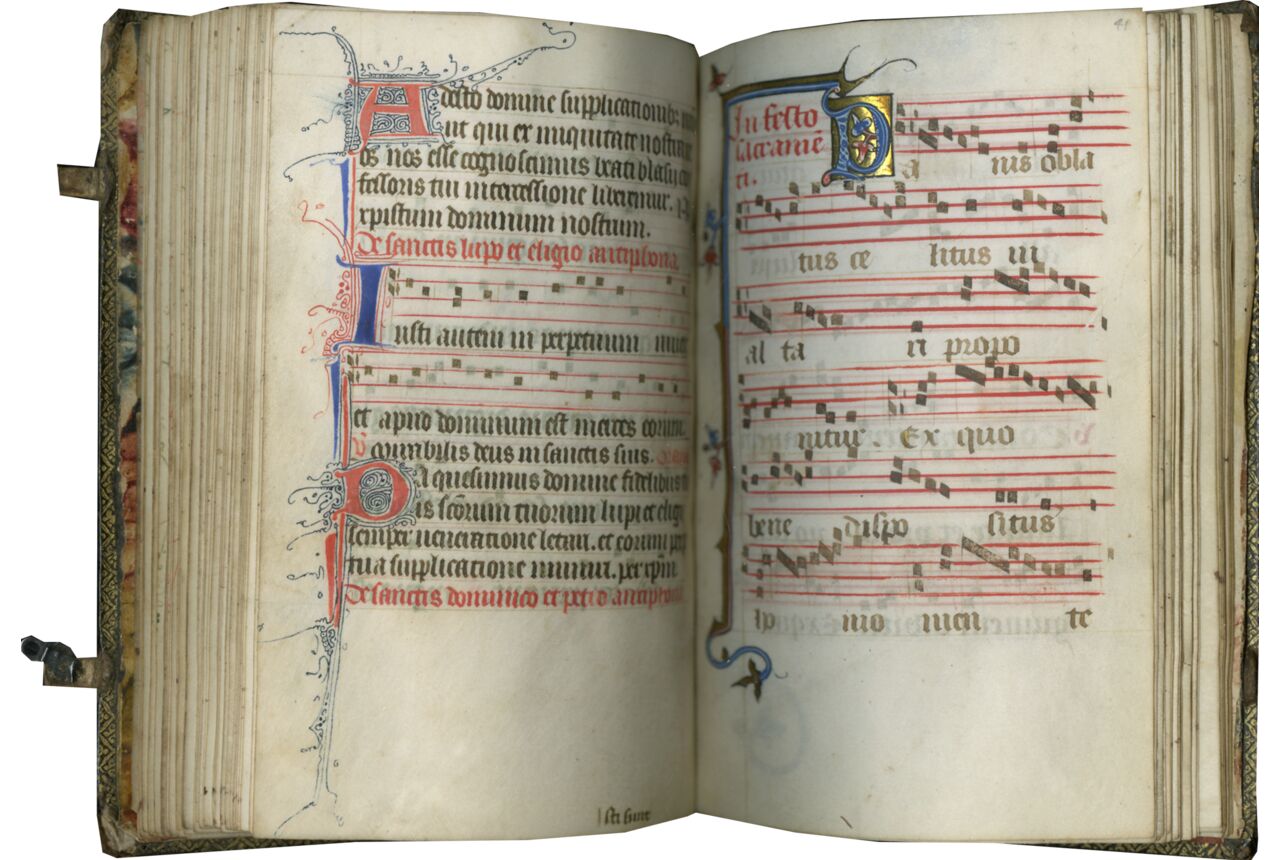 Adesto domine supplicationibꝫ
ut qui ex iniquitate nostra
os nos esse cognoscimus beati blasij co
fessoris tui intercessione liberemur. P
xpistum dominum nostrum.
De sanctis lupo et eligio antiphona.
Iusti autem in perpetuum
et apud dominum est merces eorum.
mirabilis deus in sanctis suis.
Da quesumus domine fidelibus
is scōrum tuorum lupi et eligij
semper ueneratione letari. et eorum
tua supplicatione muniri. per xp̄m
De sanctis dominico et petro antiphona.
sti sunt
41
In festo
sacrame
ti.
Da nis obla
tus ce litus in
al ta ri propo
nitur. Ex quo
bene dispo situs
ip mo men te